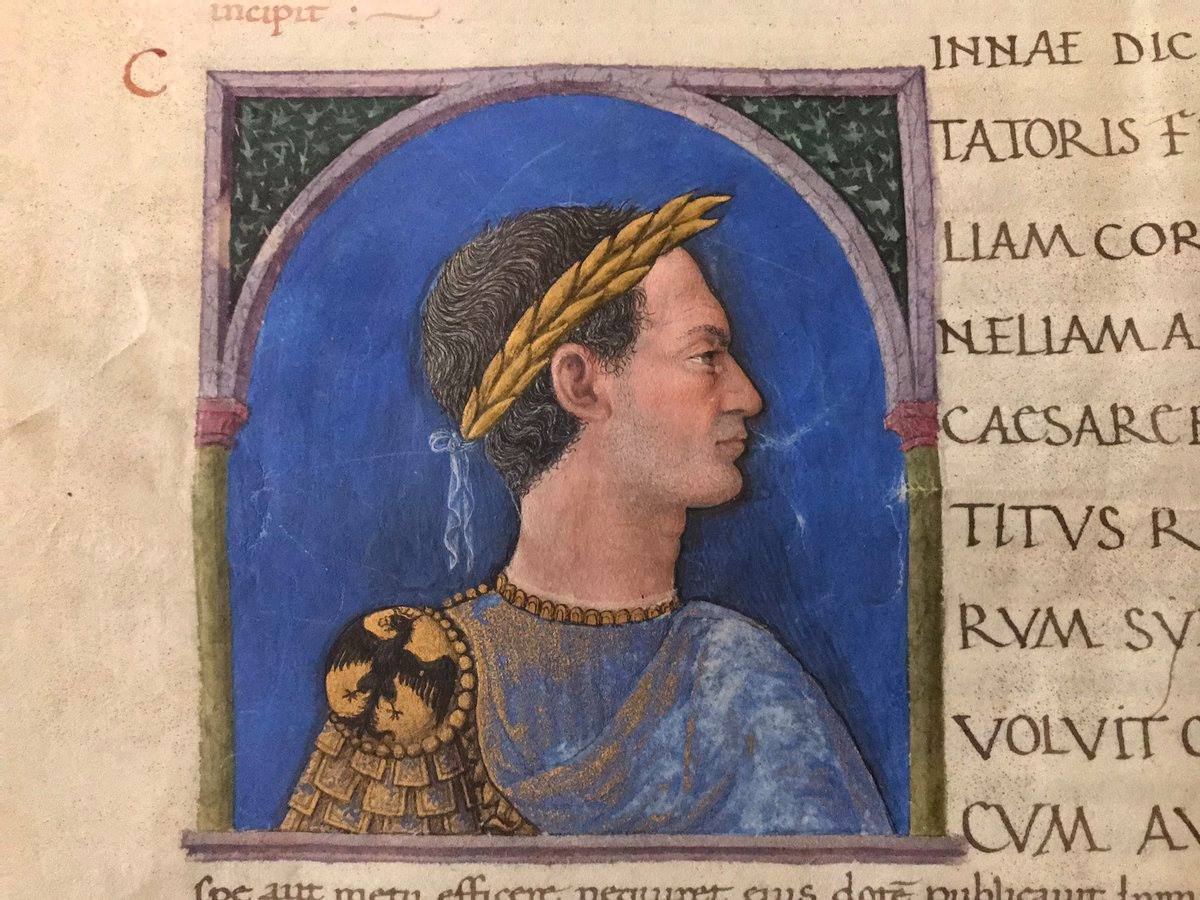 incipit :
C
INNAE DIC
TATORIS F
LIAM COR
NELIAM A
CAESARE
TITVS R
RVM SY
VOLVIT
CVM AV
spe aut metu efficere nequiret eius dotē publicauit